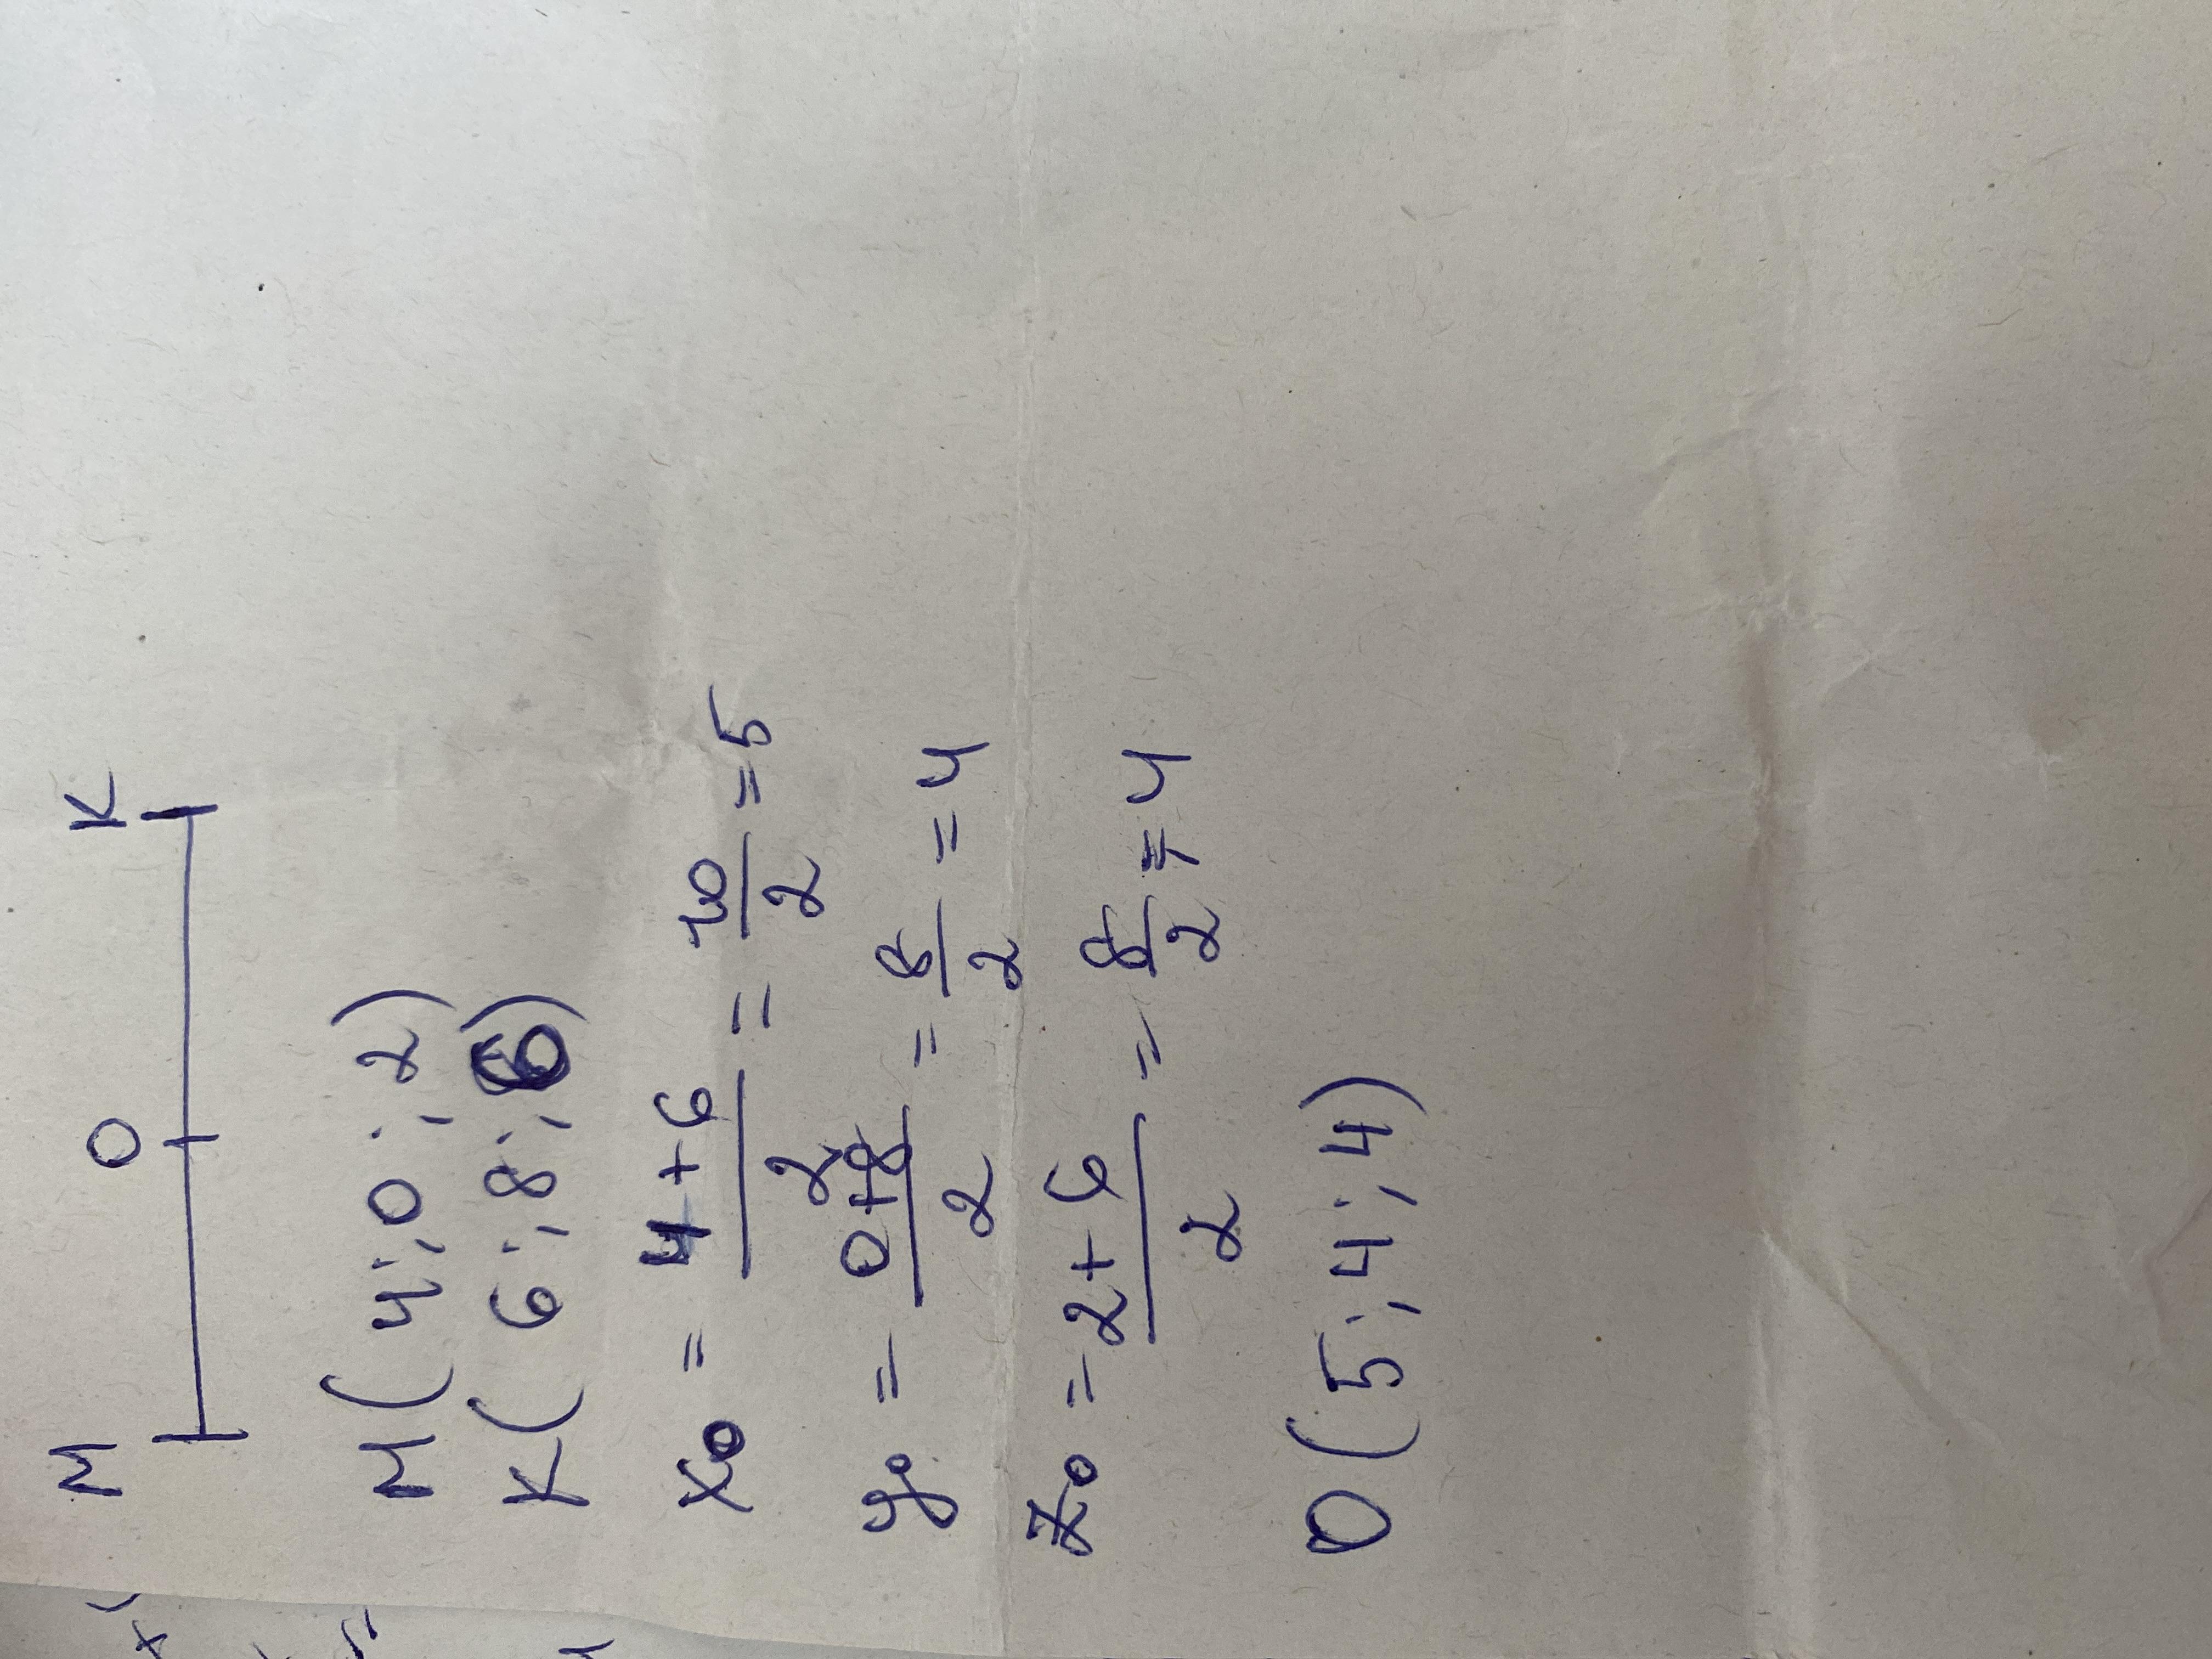 M O K
M ( 4 ; 0 ; 2 )
K ( 6 ; 8 ; 6 )
x₀ = 4 + 6 / 2 = 10 / 2 = 5
y₀ = 0 + 8 / 2 = 8 / 2 = 4
z₀ = 2 + 6 / 2 = 8 / 2 = 4
O ( 5 ; 4 ; 4 )